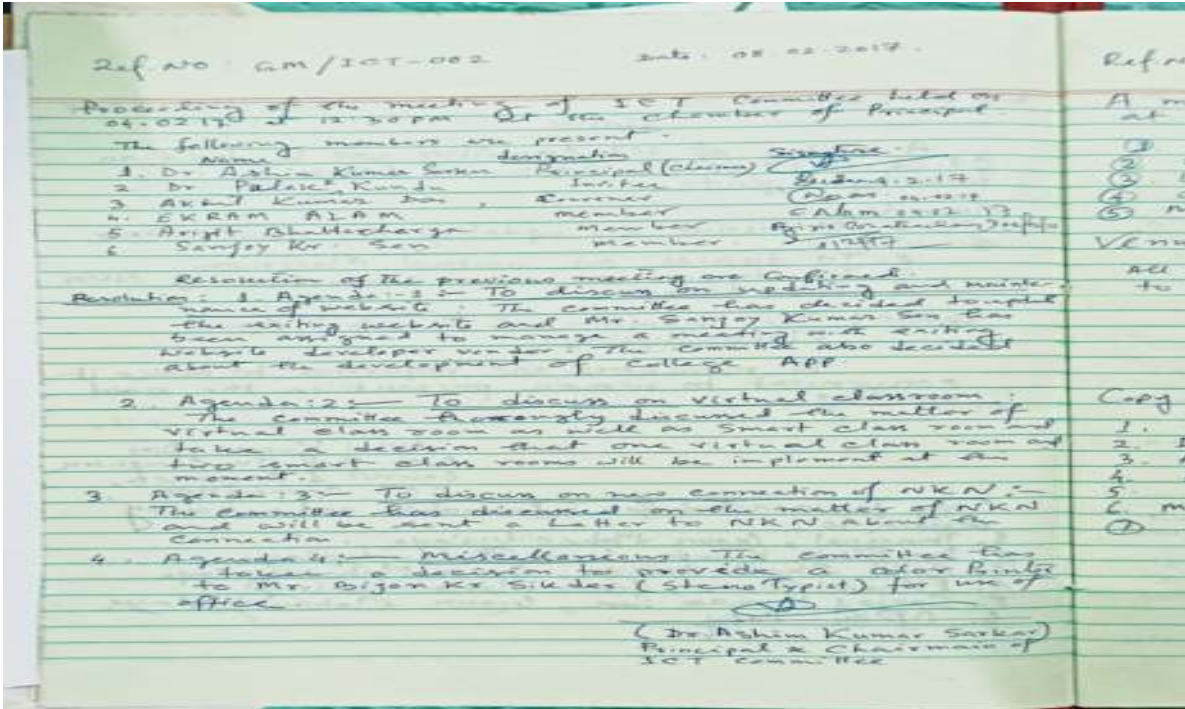 Ref. No GM/ICT-002 Date. 08.02.2017.
Proceeding of the meeting of ICT Committee held on
04-02 17 at 12.30 pm At the chamber of Principal.
The following members are present.
Name designation Signature.
1. Dr Ashim Kumar Sarkar Principal (Chairman)
2 Dr Palash Kundu Invitee
3 Akhil Kumar Das, Convener
4. EKRAM ALAM member EAlam
5. Arijit Bhattacharya member
6 Sanjoy Kr. Sen member
Resolution of the previous meeting are Confirmed.
Resolution: 1. Agenda:-1:- To discuss on updating and mainte-
nance of website. The committee has decided to
the exiting website and Mr. Sanjoy Kumar Sen has
been assigned to manage a meeting with exiting
website developer vendor. The committee also decided
about the development of College APP
2. Agenda:2:- To discuss on virtual classroom:
The committee discussed the matter of
virtual class room as well as Smart class room and
take a decision that one virtual class room and
two smart class rooms will be implement at the
moment.
3. Agenda:3:- To discuss on new connection of NKN:-
The committee has discussed on the matter of NKN
and will be sent a Letter to NKN about the
connection.
4. Agenda 4:- Miscellaneous: The committee has
taken a decision to provide a Printer
to Mr. Bijon Kr Sikder (Steno Typist) for use of
office
(Dr. Ashim Kumar Sarkar)
Principal & Chairman of
ICT Committee
Ref.
A
at
1
2
3
4
5
Venu
All
to
Copy
1.
2.
3.
4.
5.
6. m
7